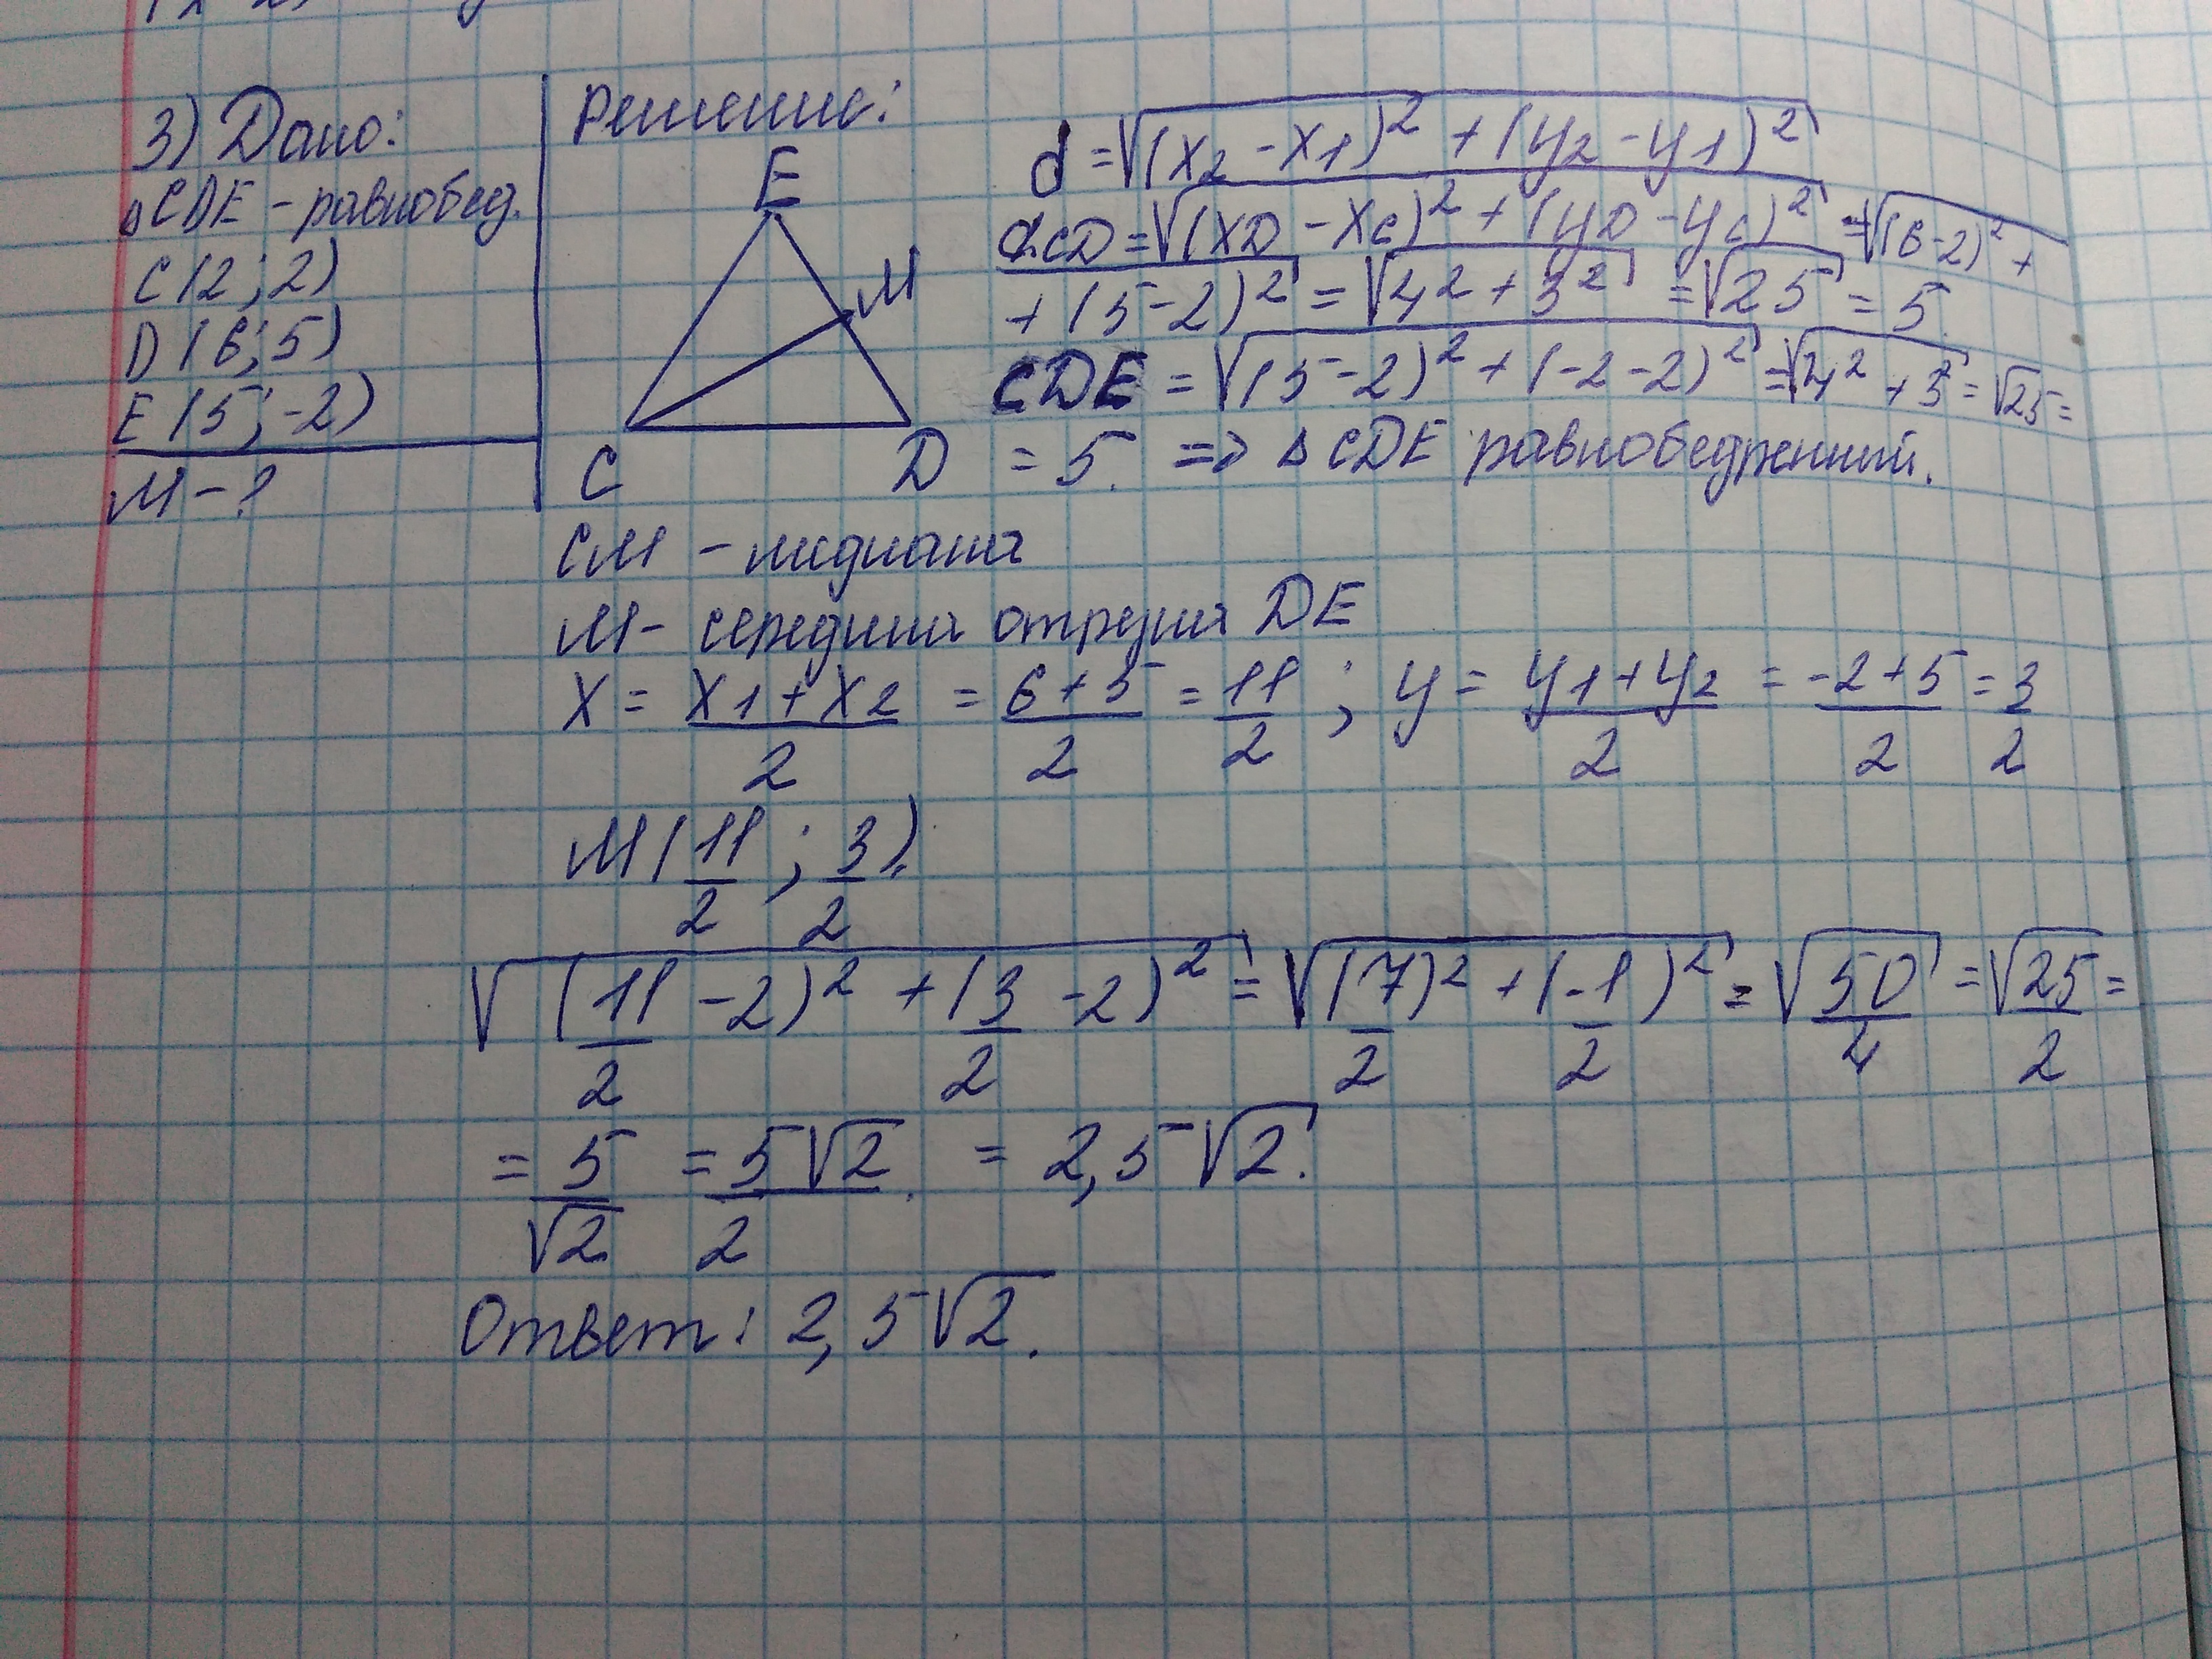 3) Дано:
△CDE - равнобед.
C(2; 2)
D(6; 5)
E(5; -2)
M - ?
Решение:
E
M
C
D
d = √((x2 - x1)² + (y2 - y1)²)
dCD = √((xD - xC)² + (yD - yC)²) = √((6-2)² +
+ (5-2)²) = √(4² + 3²) = √25 = 5.
CDE = √((5-2)² + (-2-2)²) = √(4² + 3²) = √25 =
= 5. => △CDE равнобедренный.
CM - медиана
M - середина отрезка DE
x = (x1 + x2)/2 = (6+5)/2 = 11/2; y = (y1+y2)/2 = (-2+5)/2 = 3/2
M(11/2; 3/2).
√((11/2 - 2)² + (3/2 - 2)²) = √((7/2)² + (-1/2)²) = √(50/4) = √(25/2) =
= 5/√2 = 5√2/2. = 2,5√2.
Ответ: 2,5√2.